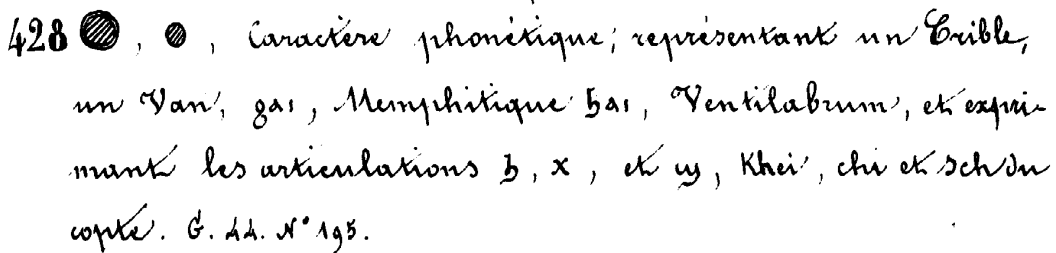 428 𓐍, 𓐍, Caractère phonétique; représentant un Crible,
un Van, ϩⲁⲓ, Memphitique ϧⲁⲓ, Ventilabrum, et expri-
mant les articulations ϧ, ⲭ, et ϣ, Khei, chi et sch du
copte. G. 44. N° 195.